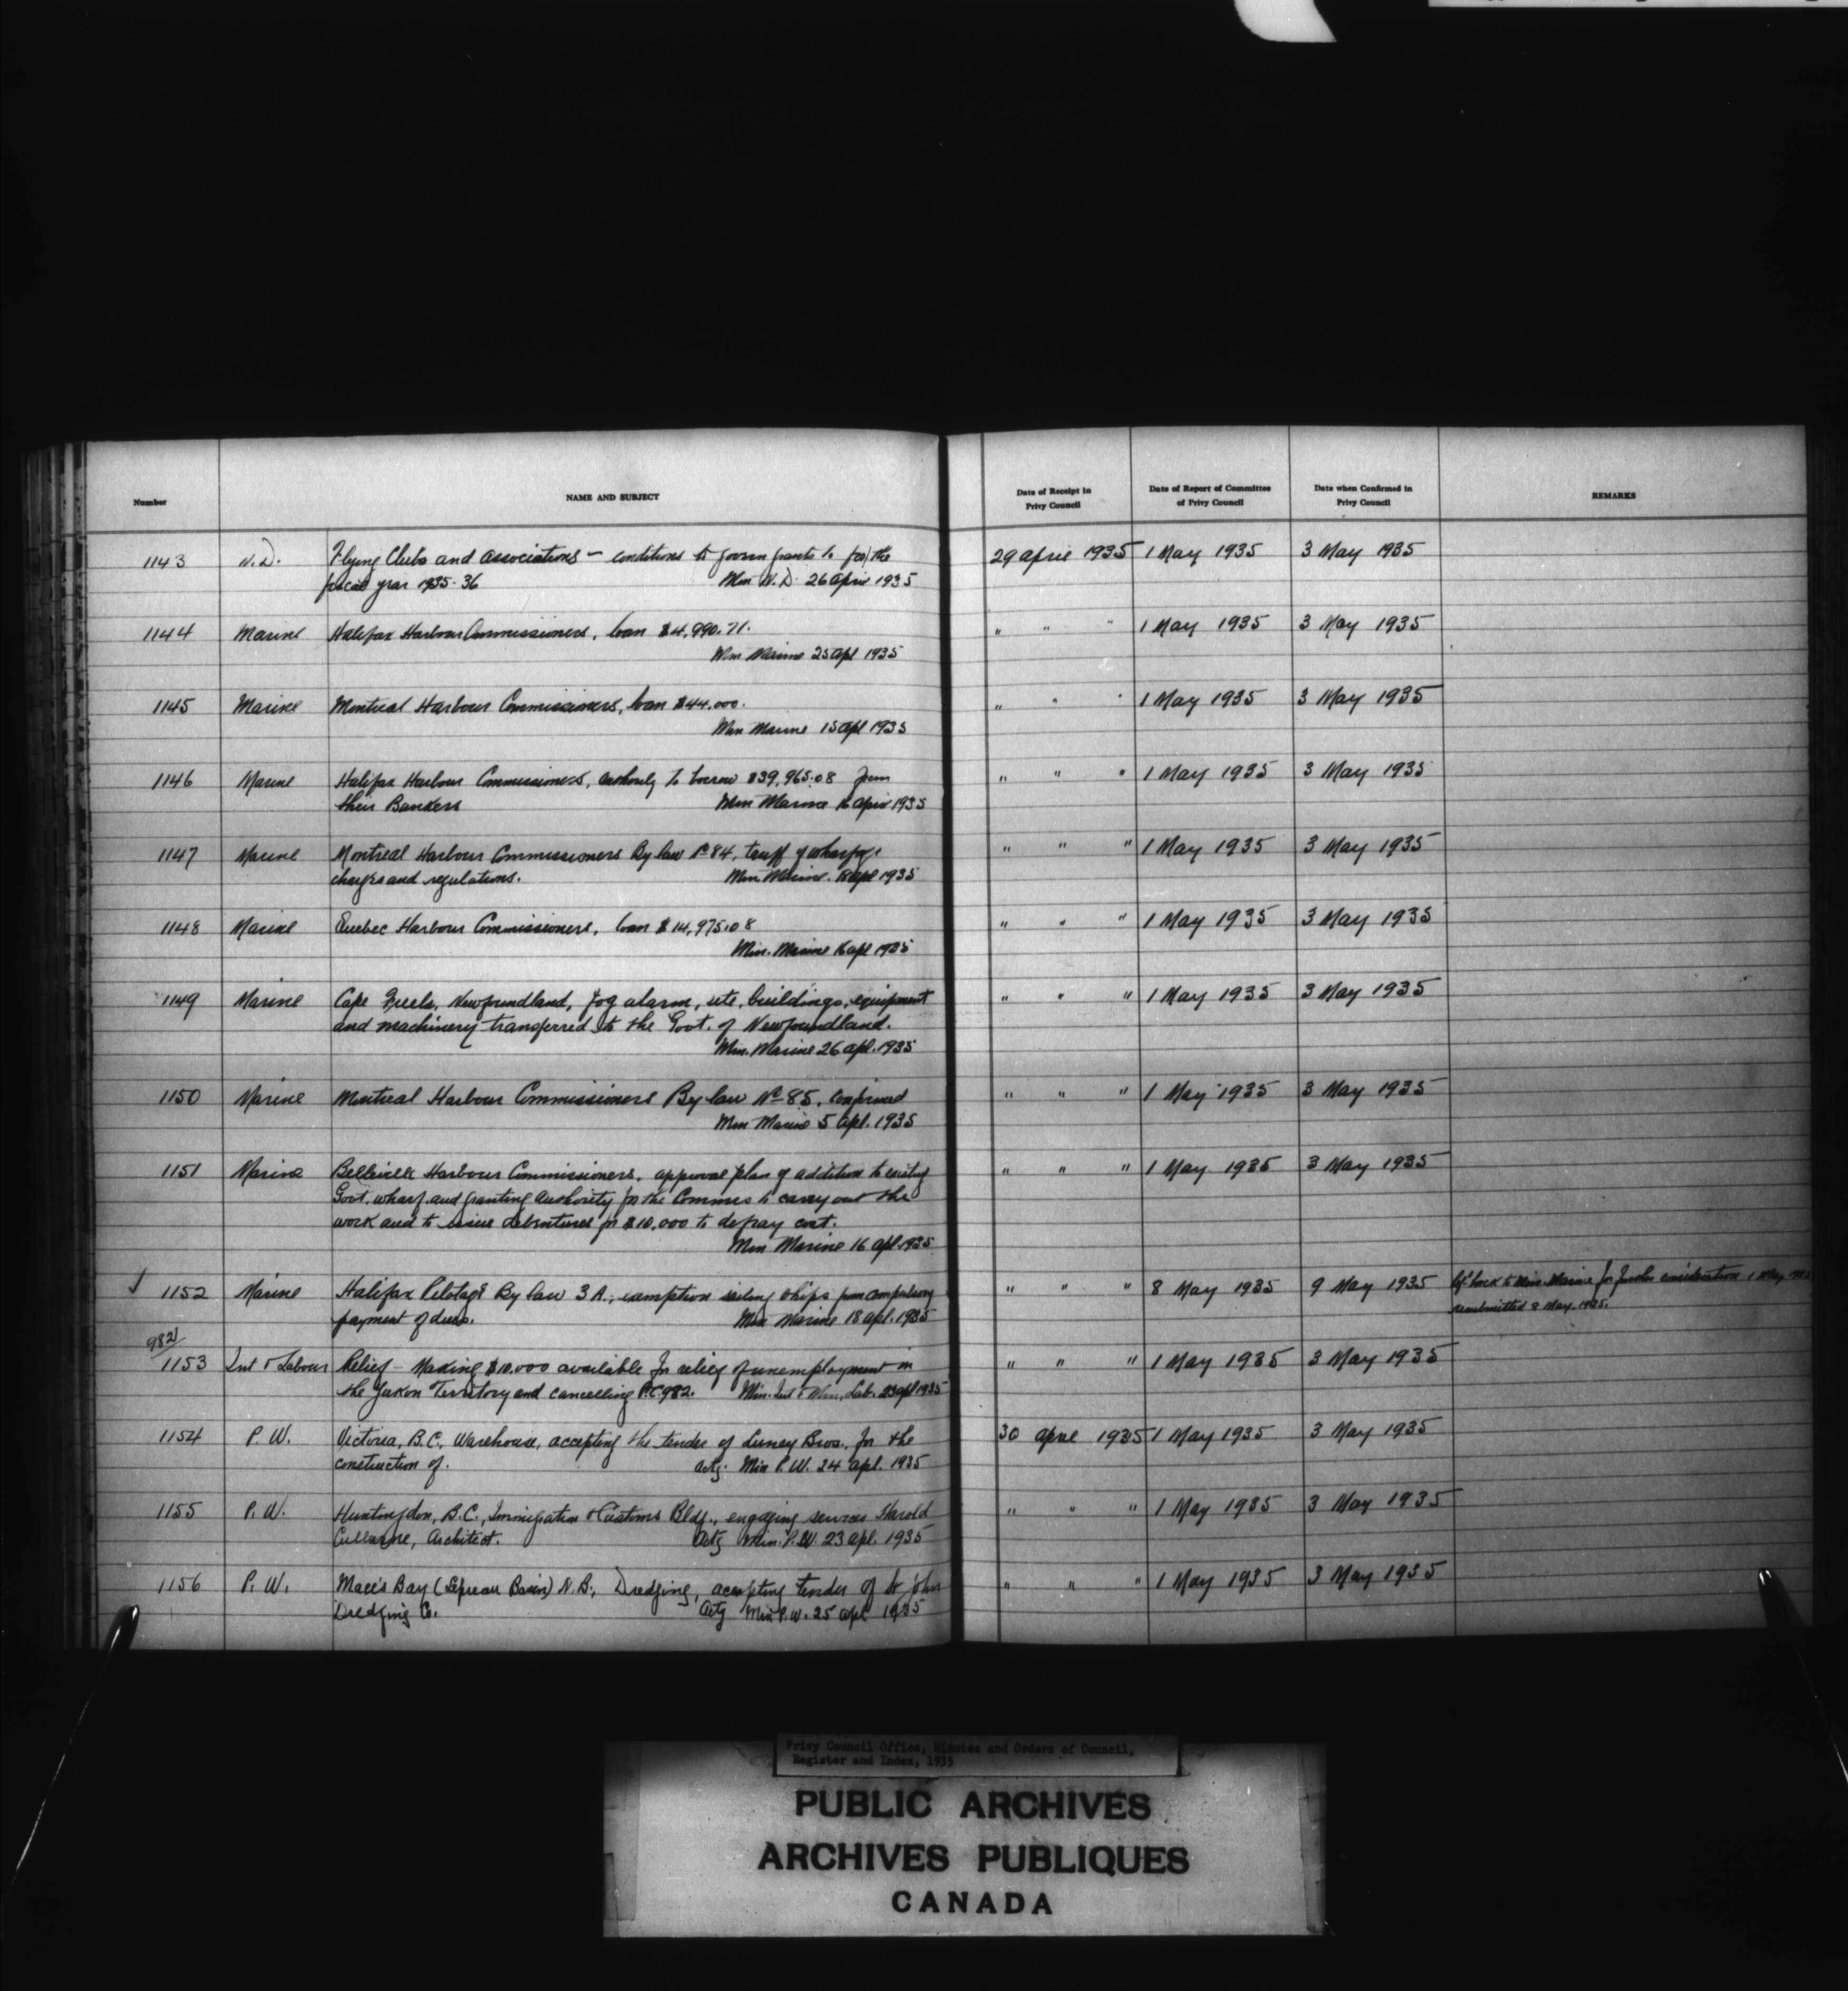 Number
NAME AND SUBJECT
Date of Receipt in Privy Council
Date of Report of Committee of Privy Council
Date when Confirmed in Privy Council
REMARKS
1143 N.D. Flying Clubs and Associations – conditions to govern grants to for the 29 April 1935 1 May 1935 3 May 1935
fiscal year 1935-36 Min N.D. 26 April 1935
1144 Marine Halifax Harbour Commissioners, loan $4,990.71. " " " 1 May 1935 3 May 1935
Min Marine 25 Apl 1935
1145 Marine Montreal Harbour Commissioners, loan $44,000. " " " 1 May 1935 3 May 1935
Min Marine 15 Apl 1935
1146 Marine Halifax Harbour Commissioners, authority to borrow $39,965.08 from " " " 1 May 1935 3 May 1935
their Bankers Min Marine 16 April 1935
1147 Marine Montreal Harbour Commissioners By law No 84, tariff of wharfage " " " 1 May 1935 3 May 1935
charges and regulations. Min. Marine. Apl 1935
1148 Marine Quebec Harbour Commissioners, loan $14,975.08 " " " 1 May 1935 3 May 1935
Min. Marine 16 Apl 1935
1149 Marine Cape Freels, Newfoundland, fog alarm, site, buildings, equipment " " " 1 May 1935 3 May 1935
and machinery transferred to the Govt. of Newfoundland.
Min. Marine 26 Apl. 1935
1150 Marine Montreal Harbour Commissioners By-law No 85, confirmed " " " 1 May 1935 3 May 1935
Min Marine 5 Apl. 1935
1151 Marine Belleville Harbour Commissioners, approval plan of addition to existing " " " 1 May 1935 3 May 1935
Govt. wharf and granting authority for the Commrs to carry out the
work and to issue debentures for $10,000 to defray cost.
Min Marine 16 Apl. 1935
✓ 1152 Marine Halifax Pilotage By law 3 A., exemption sailing ships from compulsory " " " 8 May 1935 9 May 1935 back to Min. Marine for further consideration 1 May
payment of dues. Min Marine 18 Apl. 1935 resubmitted 8 May. 1935.
982/
1153 Int & Labour Relief – Making $10.000 available for relief of unemployment in " " " 1 May 1935 3 May 1935
the Yukon Territory and cancelling P.C. 982. Min. Int & Min. Lab. 23 Apl 1935
1154 P.W. Victoria, B.C., Warehouse, accepting the tender of Luney Bros. for the 30 April 1935 1 May 1935 3 May 1935
construction of. Actg. Min P.W. 24 Apl. 1935
1155 P.W. Huntingdon, B.C., Immigration & Customs Bldg., engaging services Harold " " " 1 May 1935 3 May 1935
Cullerne, Architect. Actg Min. P.W. 23 Apl. 1935
1156 P.W. Mace's Bay (Lepreau Basin) N.B., Dredging, accepting tender of St John " " " 1 May 1935 3 May 1935
Dredging Co. Actg Min P.W. 25 Apl 1935
Privy Council Office, Minutes and Orders of Council,
Register and Index, 1935
PUBLIC ARCHIVES
ARCHIVES PUBLIQUES
CANADA